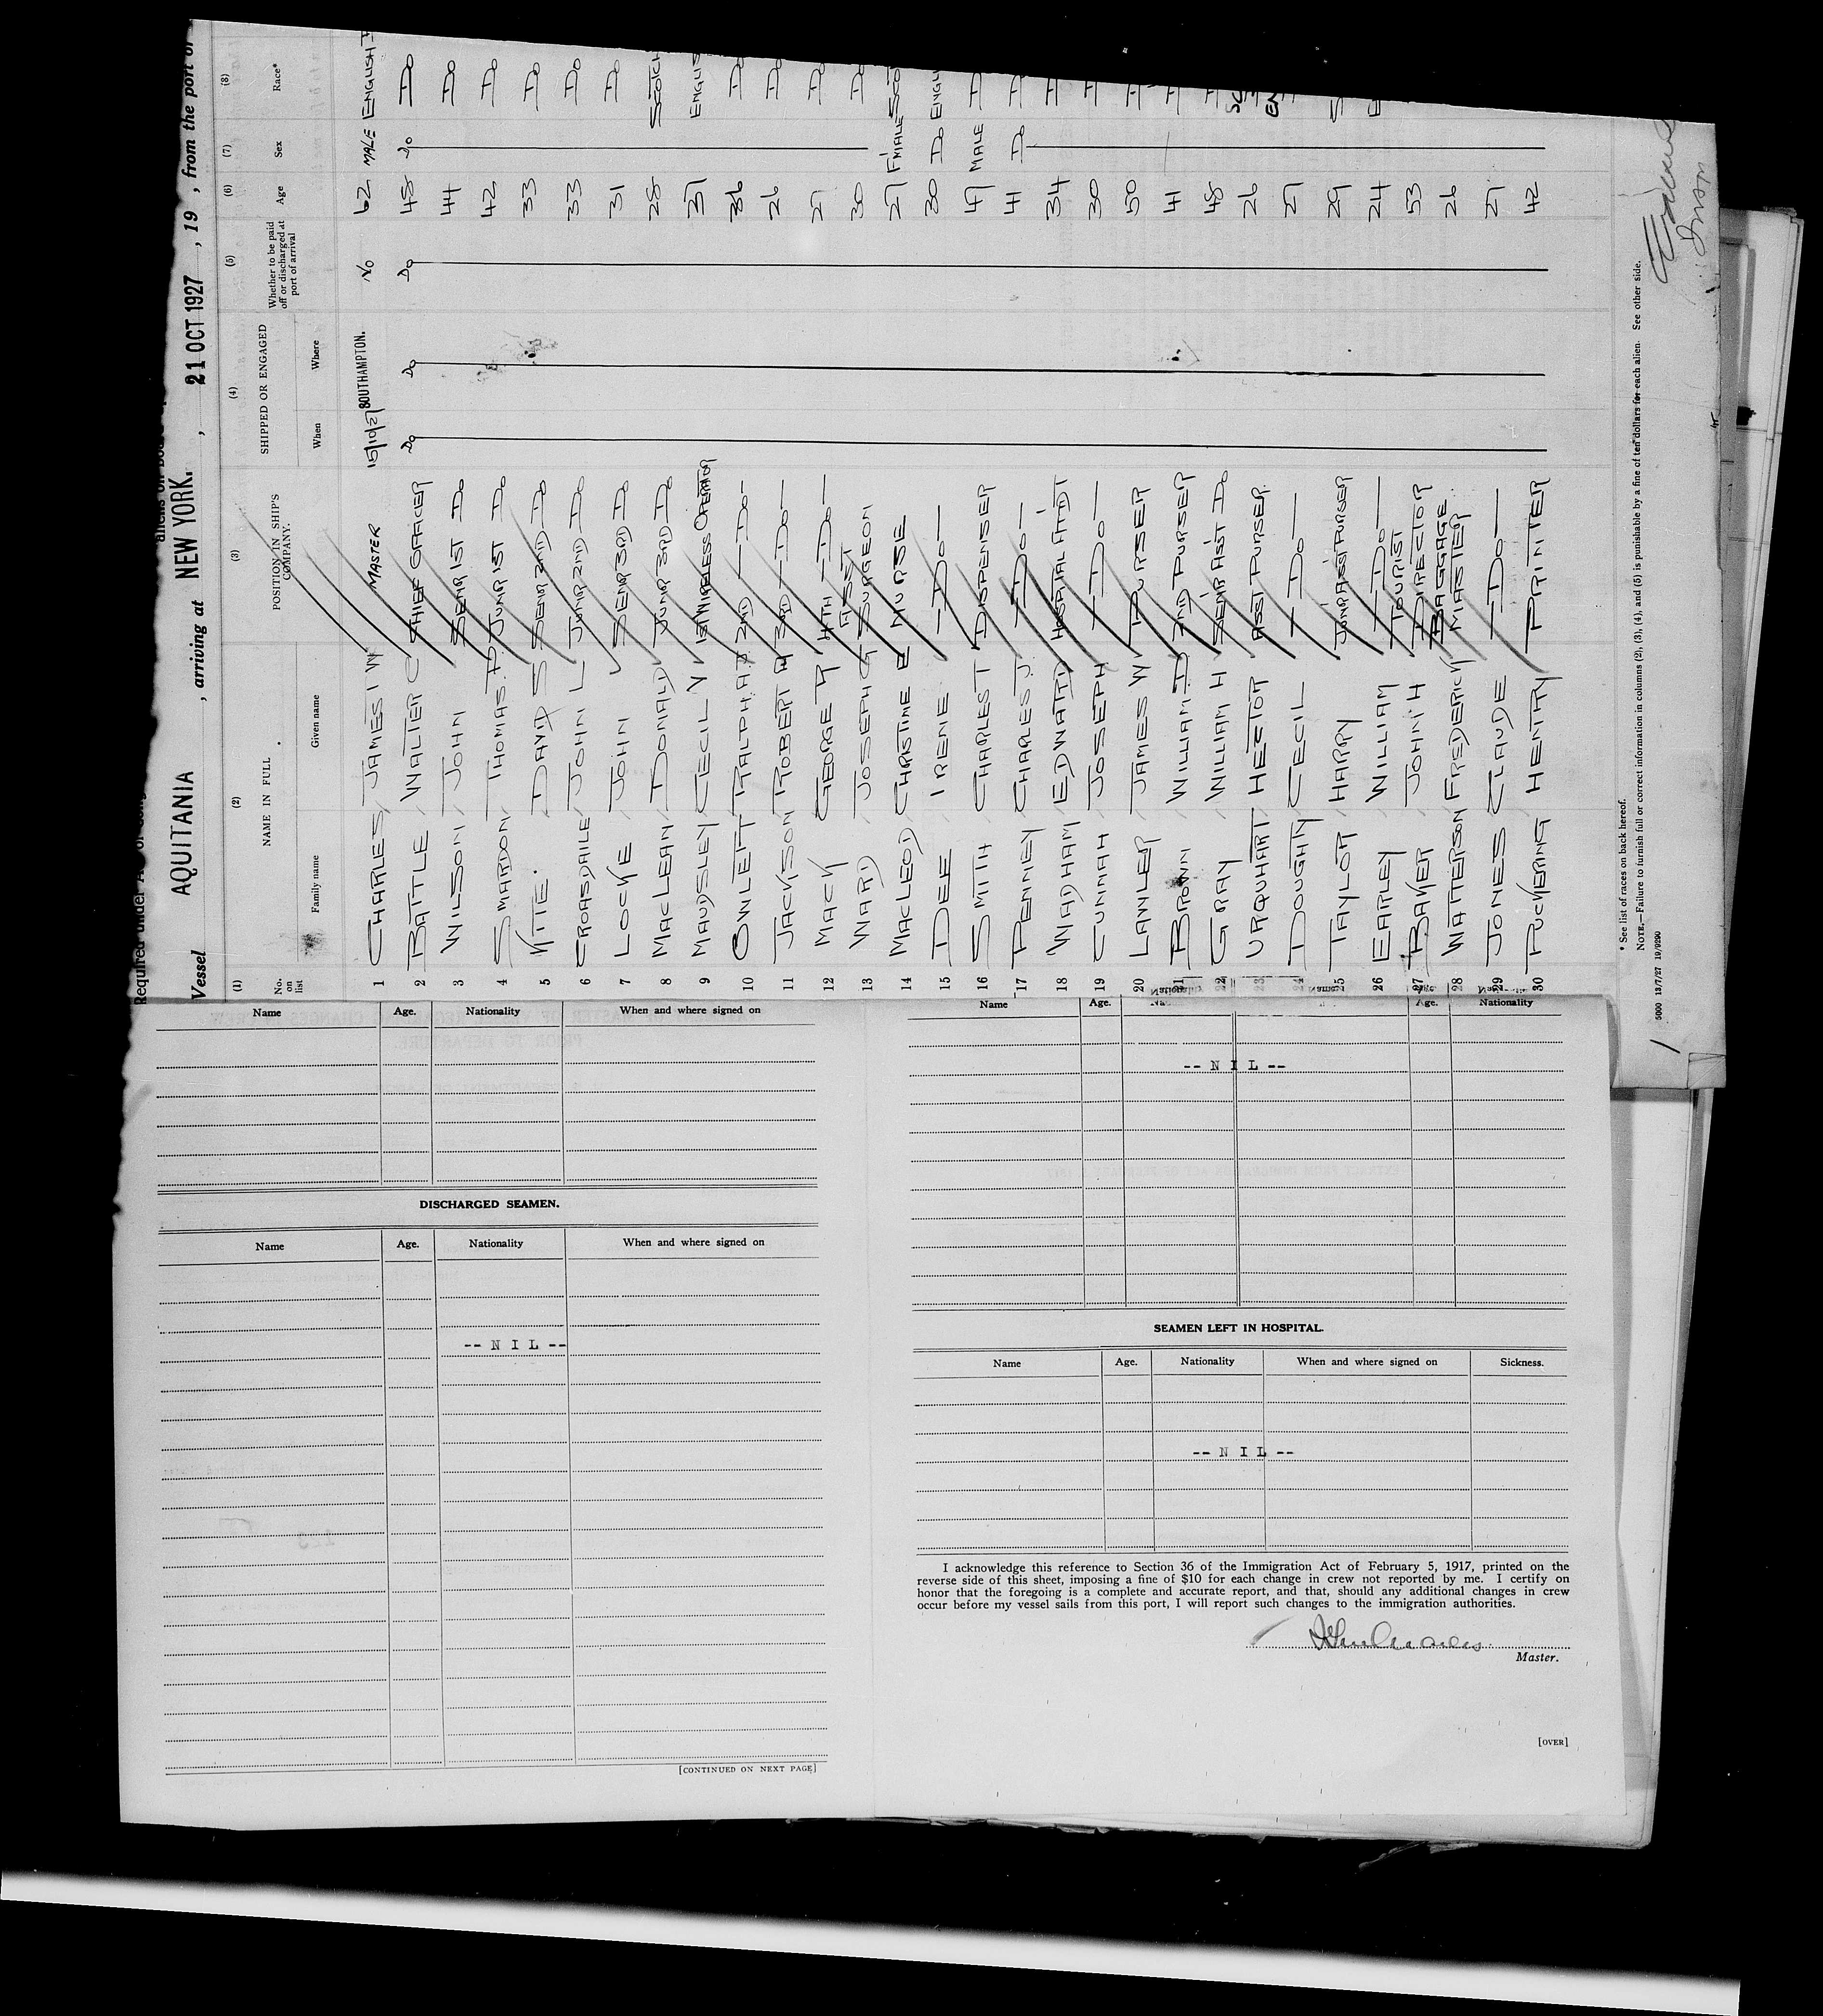 Required under Act of
aliens on board
Vessel AQUITANIA , arriving at NEW YORK. , 21 OCT 1927 , 19 , from the port of
(1) (2) (3) (4) (5) (6) (7) (8)
No. on list NAME IN FULL POSITION IN SHIP'S COMPANY. SHIPPED OR ENGAGED Whether to be paid off or discharged at port of arrival Age Sex Race*
Family name Given name When Where
1 CHARLES JAMES I W MASTER 15/10/27 SOUTHAMPTON. No 62 MALE ENGLISH
2 BATTLE WALTER C CHIEF OFFICER Do Do Do 48 Do Do
3 WILSON JOHN SENR 1ST Do 44 Do
4 SMARDON THOMAS. P JUNR 1ST Do 42 Do
5 KTIE. DAVID S SENR 2ND Do 33 Do
6 CROASDAILE JOHN L JUNR 2ND Do 33 Do
7 LOCKE JOHN SENR 3RD Do 31 Do
8 MACLEAN DONALD JUNR 3RD Do 28 SCOTCH
9 MAUDSLEY CECIL V 1ST WIRELESS OPERATOR 37 ENGLIS
10 OWLETT RALPH. A. J 2ND — Do — 36 Do
11 JACKSON ROBERT A 3RD — Do — 26 Do
12 MACK GEORGE R 4TH — Do — 27 Do
13 WARD JOSEPH G ASST SURGEON 30 Do
14 MACLEOD CHRISTINE E NURSE 27 F'MALE SCO
15 DEE IRENE — Do — 30 Do ENGLI
16 SMITH CHARLES T DISPENSER 47 MALE D
17 PENNEY CHARLES J. — Do — 41 Do D
18 WADHAM EDWARD HOSPITAL ATTDT 34
19 CUNNAH JOSEPH — Do — 30
20 LAWLER JAMES W PURSER 50
21 BROWN WILLIAM D 2ND PURSER 41
22 GRAY WILLIAM H SENR ASST Do 48
23 URQUHART HESTOR ASST PURSER. 26 SC
24 DOUGHTY CECIL — Do — 27 EN
25 TAYLOR HARRY JUNR ASST PURSER 29 S
26 EARLEY WILLIAM — Do — 24 E
27 BAKER JOHN H TOURIST DIRECTOR 53
28 WATTERSON FREDERICK BAGGAGE MASTER 26
29 JONES CLAUDE — Do — 27
30 PUCKERING HENRY PRINTER 42
* See list of races on back hereof.
NOTE.—Failure to furnish full or correct information in columns (2), (3), (4), and (5) is punishable by a fine of ten dollars for each alien. See other side.
5000 13/7/27 19/9290
Name Age. Nationality When and where signed on
DISCHARGED SEAMEN.
Name Age. Nationality When and where signed on
-- N I L --
[CONTINUED ON NEXT PAGE]
Name Age. Nationality Name Age. Nationality
-- N I L --
SEAMEN LEFT IN HOSPITAL.
Name Age. Nationality When and where signed on Sickness.
-- N I L --
I acknowledge this reference to Section 36 of the Immigration Act of February 5, 1917, printed on the
reverse side of this sheet, imposing a fine of $10 for each change in crew not reported by me. I certify on
honor that the foregoing is a complete and accurate report, and that, should any additional changes in crew
occur before my vessel sails from this port, I will report such changes to the immigration authorities.
Master.
[OVER]